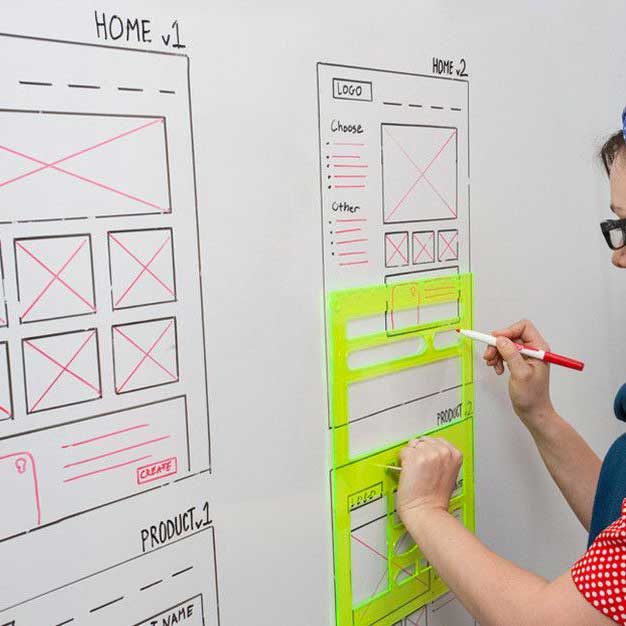 HOME v1
CREATE
PRODUCT v1
NAME
HOME v2
LOGO
Choose
Other
PRODUCT v2
LOGO